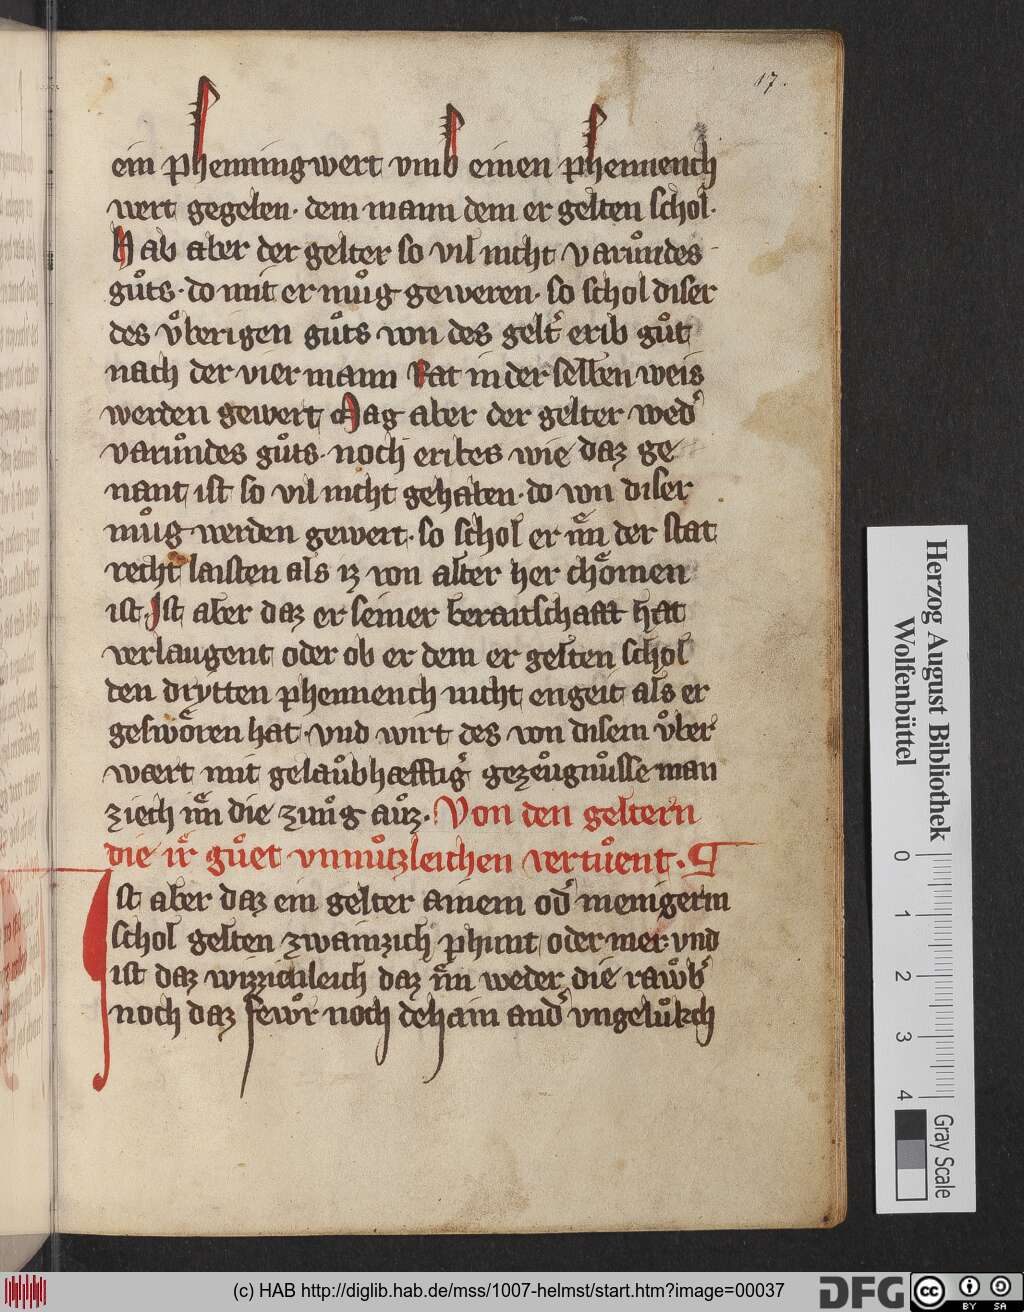 17.
ein phenningwert vmb einen phennench
wert gegeben · dem mann dem er gelten schol ·
Hab aber der gelter so vil nicht varuͦndes
guͦts · do mit er muͦg geweren · so schol diser
des vͦberigen guͦts von des gelt̉ erib guͦt
nach der vier mann Rat in der selben weis
werden gewert Mag aber der gelter wed̉
varuͦndes guͦts · noch eribes wie daz ge
nant ist so vil nicht gehaben · do von diser
muͦg werden gewert · so schol er im̉ der stat
recht laisten als iz von alter her choͤmen
ist · Ist aber daz er seiner beraitschafft hat
verlaugent oder ob er dem er gelten schol
den drytten phennench nicht engeit als er
geswoͤren hat · vnd wirt des von disem vͦber
wært mit gelauͦbhæfftig̉ gezeuͦgnuͦsse man
ziech im̉ die zung auͦz · Von den geltern
die ir̉ guͦet vnnuͦtzleichen vertuͦent ·
Ist aber daz ein gelter ainem od̉ menigerm
schol gelten zwainzich phunt oder mer · vnd
ist daz wizzichleich daz im̉ weder die rawͦb̉
noch daz fewͦr noch dehain and̉ vngeluͦkch
Herzog August Bibliothek
Wolfenbüttel
0 1 2 3 4
Gray Scale
(c) HAB http://diglib.hab.de/mss/1007-helmst/start.htm?image=00037
DFG
cc
BY SA